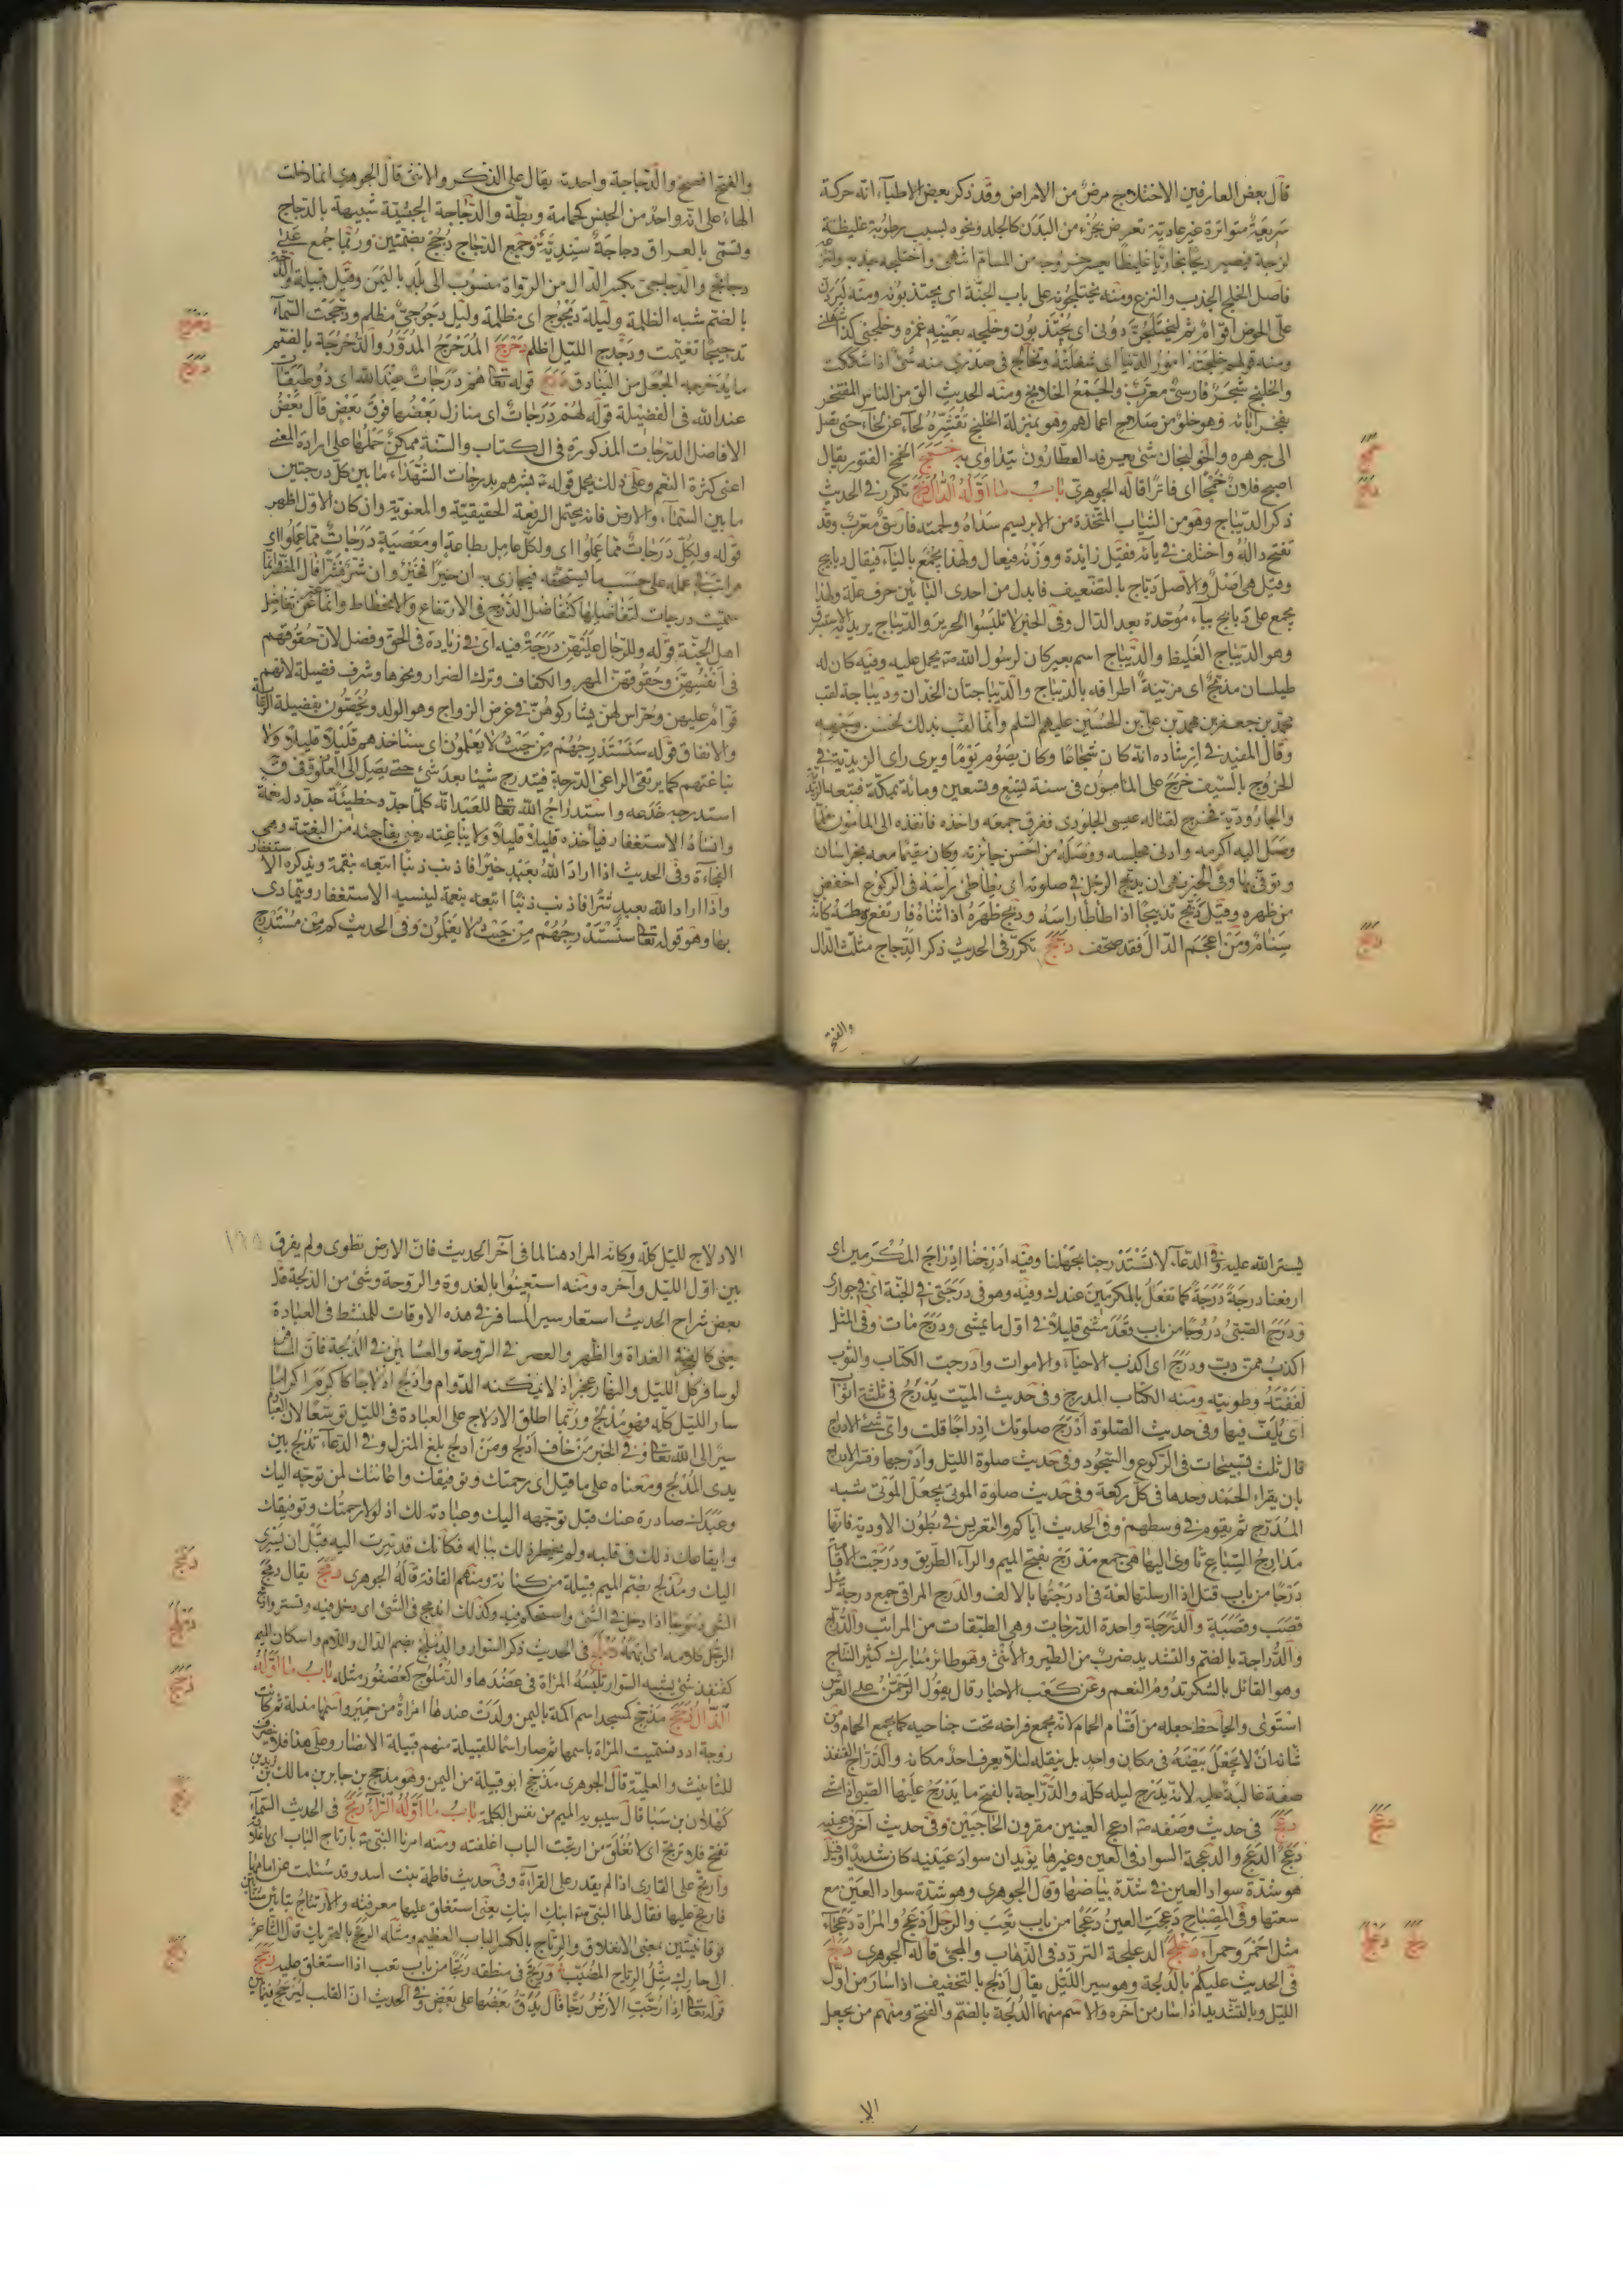 قال بعض العارفين الاختلاج مرض من الامراض وقد ذكر بعض الاطباء انه حركة
سريعة متواترة غير عادية تعرض لجزء من البدن كالجلد ونحوه بسبب رطوبة غليظة
لزجة فيصير ريحا بخاريا غليظا يعسر خروجه من المسام انتهى واختلجه جذبه وانتزعه
فاصل الخلج الجذب والنزع ومنه يختلجونه على باب الجنة اى يجتذبونه ومنه ليردن
على الحوض اقوام ثم ليختلجن دونى اى يجتذبون وخلجه بعينه غمزه وخلجنى كذا
ومنه قولهم خلجته امور الدنيا اى شغلته وتخالج فى صدرى منه شئ اذا شككت
والخلنج شجر فارسى معرب والجمع الخلانج ومنه الحديث الق من الناس المفتخر
بفخر آبائه وهو خلو من صالح اعمالهم وهو بمنزلة الخلنج تقشره لحاء عن لحاء حتى يصل
الى جوهره والخولنجان شئ يعرفه العطارون يتداوى به خمج الخمج الفتور يقال
اصبح فلان خمجا اى فاترا قاله الجوهرى باب ما اوله الدال دبج تكرر فى الحديث
ذكر الديباج وهو من الثياب المتخذة من الابريسم سداه ولحمته فارسى معرب وقد
تفتح داله واختلف فى يائه فقيل زايدة ووزنه فيعال ولهذا يجمع بالياء فيقال ديابيج
وقيل هى اصل والاصل دباج بالتضعيف فابدل من احدى البائين حرف علة ولهذا
يجمع على دبابيج بباء موحدة بعد الدال وفى الخبر لا تلبسوا الحرير والديباج يريد الاستبرق
وهو الديباج الغليظ والديباج اسم بعير كان لرسول الله ص يحمل عليه وفيه كان له
طيلسان مدبج اى مزينة اطرافه بالديباج والديباجتان الخدان وديباجة لقب
محمد بن جعفر بن محمد بن على بن الحسين عليهم السلم وانما لقب بذلك لحسن وجهه
وقال المفيد فى ارشاده انه كان شجاعا وكان يصوم يوما ويرى راى الزيدية فى
الخروج بالسيف خرج على المامون فى سنة تسع وتسعين ومائة بمكة فتبعه الزيدية
والجارودية فخرج لقتاله عيسى الجلودى ففرق جمعه واخذه فانفذه الى المامون فلما
وصل اليه اكرمه وادنى مجلسه ووصله من احسن جائزته وكان مقيما معه بخراسان
وتوفى بها وفى الخبر نهى ان يدبج الرجل فى صلوته اى يطأطئ راسه فى الركوع اخفض
من ظهره وقيل دبج تدبيجا اذا طاطأ راسه ودبج ظهره اذا ثناه فارتفع وسطه كانه
سنام ومن اعجم الدال فقد صحف دجج تكرر فى الحديث ذكر الدجاج مثلث الدال
والفتح
خمج
دبج
دجج
والفتح افصح والدجاجة واحدته يقال على الذكر والانثى قال الجوهرى انما دخلت
الهاء على انه واحد من الجنس كحمامة وبطة والدجاجة الحبشية شبيهة بالدجاج
وتسمى بالعراق دجاجة سندية وجمع الدجاج دجج بضمتين وربما جمع على
دجائج والدجاجى بكسر الدال من الرواة منسوب الى بلد باليمن وقيل قبيلة والدجة
بالضم شبه الظلمة وليلة ديجوج اى مظلمة وليل دجوجى مظلم ودججت السماء
تدجيجا تغيمت ودجدج الليل اظلم دحرج المدحرج المدور والدحروجة بالضم
ما يدحرجه الجعل من البنادق درج قوله تعا هم درجات عند الله اى ذو طبقات
عند الله فى الفضيلة قوله لهم درجات اى منازل بعضها فوق بعض قال بعض
الافاضل الدرجات المذكورة فى الكتاب والسنة ممكن حملها على ارادة المعنى
اعنى كثرة النعم وعلى ذلك يحمل قوله ع بشرهم بدرجات الشهداء ما بين كل درجتين
ما بين السماء والارض فانه يحتمل الرفعة الحقيقية والمعنوية وان كان الاول اظهر
قوله ولكل درجات مما عملوا اى ولكل عامل بطاعة او معصية درجات مما عملوا اى
مراتب فى عمله على حسب ما يستحقه فيجازى به ان خيرا فخير وان شر فشرا قال المفسر انما
سميت درجات لتفاضلها كتفاضل الدرج فى الارتفاع والانحطاط وانما عن تفاضل
اهل الجنة قوله وللرجال عليهن درجة فيه اى زيادة فى الحق وفضل لان حقوقهم
فى انفسهن وحقوقهن المهر والكفاف وترك الضرار ونحوها وشرف فضيلة لانهم
قوام عليهن وحراس لهن يشاركوهن فى غرض الزواج وهو الولد ويخصون بفضيلة الرعاية
والانفاق قوله سنستدرجهم من حيث لا يعلمون اى سناخذهم قليلا قليلا ولا
نباغتهم كما يرتقى الراقى الدرجة فيتدرج شيئا بعد شئ حتى يصل الى العلو وقيل
استدرجه خدعه واستدراج الله تعا للعبد انه كلما جدد خطيئة جدد له نعمة
وانساه الاستغفار فياخذه قليلا قليلا ولا يباغته يعنى يفاجئه من البغتة وهى
الفجاءة وفى الحديث اذا اراد الله بعبد خيرا فاذنب ذنبا اتبعه بنقمة ويذكره الاستغفار
واذا اراد الله بعبد شرا فاذنب ذنبا اتبعه بنعمة لينسيه الاستغفار ويتمادى
بها وهو قوله تعا سنستدرجهم من حيث لا يعلمون وفى الحديث كم من مستدرج
دحرج
درج
يستر الله عليه وفى الدعاء لا تستدرجنا بجهلنا وفيه ادرجنا ادراج المكرمين اى
ارفعنا درجة درجة كما تفعل بالمكرمين عندك وفيه وهو فى درجتى فى الجنة اى فى جوارى
ودرج الصبى دروجا من باب قعد مشى قليلا فى اول ما يمشى ودرج مات وفى المثل
اكذب من دب ودرج اى اكذب الاحياء والاموات وادرجت الكتاب والثوب
لففته وطويته ومنه الكتاب المدرج وفى حديث الميت يدرج فى ثلثة اثواب
اى يلف فيها وفى حديث الصلوة ادرج صلوتك ادراجا قلت واى شئ الادراج
قال ثلث تسبيحات فى الركوع والسجود وفى حديث صلوة الليل وادرجها وفسر الادراج
بان يقراء الحمد وحدها فى كل ركعة وفى حديث صلوة الموتى يجعل الموتى شبه
المدرج ثم يقوم فى وسطهم وفى الحديث اياكم والتعريس فى بطون الاودية فانها
مدارج السباع تاوى اليها هى جمع مدرج بفتح الميم والراء الطريق ودرجت الاقامة
درجا من باب قتل اذا ارسلتها لغة فى ادرجتها بالالف والدرج المراقى جمع درجة مثل
قصب وقصبة والدرجة واحدة الدرجات وهى الطبقات من المراتب والدراج
والدراجة بالضم والتشديد ضرب من الطير والانثى وهو طائر مبارك كثير النتاج
وهو القائل بالشكر تدوم النعم وعن كعب الاحبار قال يقول الرحمن على العرش
استوى والجاحظ جعله من اقسام الحمام لانه يجمع فراخه تحت جناحيه كما يجمع الحمام ومن
شانه ان لا يجعل بيضه فى مكان واحد بل ينقله لئلا يعرف احد مكانه والدراج القنفذ
صفة غالبة عليه لانه يدرج ليله كله والدراجة بالفتح ما يدرج عليها الصبى اذا مشى
دعج فى حديث وصفه ص ادعج العينين مقرون الحاجبين وفى حديث آخر فى عينيه
دعج الدعج والدعجة السواد فى العين وغيرها يريد ان سواد عينيه كان شديدا وقيل
هو شدة سواد العين فى شدة بياضها وقال الجوهرى وهو شدة سواد العين مع
سعتها وفى المصباح دعجت العين دعجا من باب تعب والرجل ادعج والمراة دعجاء
مثل احمر وحمراء دعلج الدعلجة التردد فى الذهاب والمجئ قاله الجوهرى دلج
فى الحديث عليكم بالدلجة وهو سير الليل يقال ادلج بالتخفيف اذا سار من اول
الليل وبالتشديد اذا سار من آخره والاسم منهما الدلجة بالضم والفتح ومنهم من يجعل
الا
دعج
دعلج دلج
الادلاج لليل كله وكانه المراد هنا لما فى آخر الحديث فان الارض تطوى ولم يفرق
بين اول الليل وآخره ومنه استعينوا بالغدوة والروحة وشئ من الدلجة قال
بعض شراح الحديث استعار سير المسافر فى هذه الاوقات للمنشط فى العبادة
يعنى كالفجر فى الغداة والظهر والعصر فى الروحة والعشائين فى الدلجة فان المسافر
لو سافر كل الليل والنهار عجز اذ لا يمكنه الدوام وادلج ادلاجا كاكرم اكراما
سار الليل كله فهو مدلج وربما اطلق الادلاج على العبادة فى الليل توسعا لان العبادة
سير الى الله تعا وفى الخبر من خاف ادلج ومن ادلج بلغ المنزل وفى الدعاء تدلج بين
يدى المدلج ومعناه على ما قيل اى رحمتك وتوفيقك واعانتك لمن توجه اليك
وعبدك صادرة عنك قبل توجهه اليك وعبادته لك اذ لولا رحمتك وتوفيقك
وايقاعك ذلك فى قلبه ولم يخطر ذلك بباله فكانك قد سرت اليه قبل ان يسرى
اليك ومدلج بضم الميم قبيلة من كنانة ومنهم القافة قاله الجوهرى دمج يقال دمج
الشئ دموجا اذا دخل فى الشئ واستحكم فيه وكذلك اندمج فى الشئ اى دخل فيه وتستر وادمج
الرجل كلامه اى ابهمه دملج فى الحديث ذكر السوار والدملج بضم الدال واللام واسكان الميم
كقنفذ شئ يشبه السوار تلبسه المراة فى عضدها والدملوج كعصفور مثله باب ما اوله
الذال ذحج مذحج كمسجد اسم اكمة باليمن ولدت عندها امراة من حمير واسمها مذلة ثم كانت
زوجة ادد فسميت المراة باسمها ثم صار اسما للقبيلة منهم قبيلة الانصار وعلى هذا فلا ينصرف
للتانيث والعلمية قال الجوهرى مذحج ابو قبيلة من اليمن وهو مذحج بن جابر بن مالك بن زيد بن
كهلان بن سبا قال سيبويه الميم من نفس الكلمة باب ما اوله الراء رتج فى الحديث السماء
تفتح فلا ترتج اى لا تغلق من ارتجت الباب اغلقته ومنه امرنا النبى ص بارتاج الباب اى اغلاقه
وارتج على القارى اذا لم يقدر على القراءة وفى حديث فاطمة بنت اسد وقد سئلت عن امامها
فارتج عليها فقال لها النبى ص ابنك ابنك يعنى استغلق عليها معرفته والارتتاج بتائين
فوقانيتين بمعنى الانغلاق والرتاج بالكسر الباب العظيم ومثله الرتج بالتحريك قال الشاعر
الى جارك مثل الرتاج المضبب ورتج فى منطقه رتجا من باب تعب اذا استغلق عليه رجج
قوله تعا اذا رجت الارض رجا قال يدق بعضها على بعض وفى الحديث ان القلب ليرجج فيما بين
دمج
دملج
ذحج
رتج
رجج